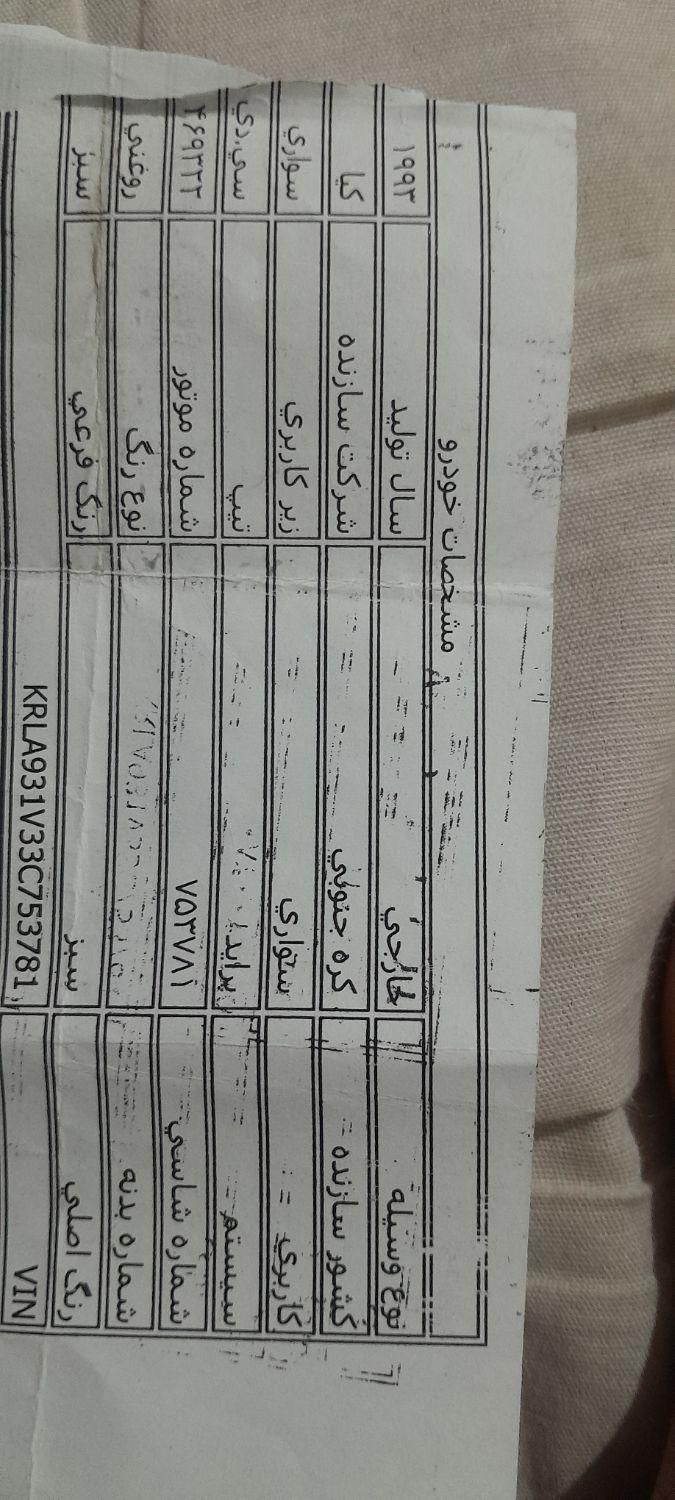 مشخصات خودرو
نوع وسیله خارجي سال تولید ۱۹۹۳
کشور سازنده کره جنوبي شرکت سازنده کیا
کاربري سواري زیر کاربري سواري
سیستم پراید تیپ سي.دي
شماره شاسي ۷۵۳۷۸۱ شماره موتور
شماره بدنه نوع رنگ روغني
رنگ اصلي سبز رنگ فرعي سبز
VIN KRLA931V33C753781